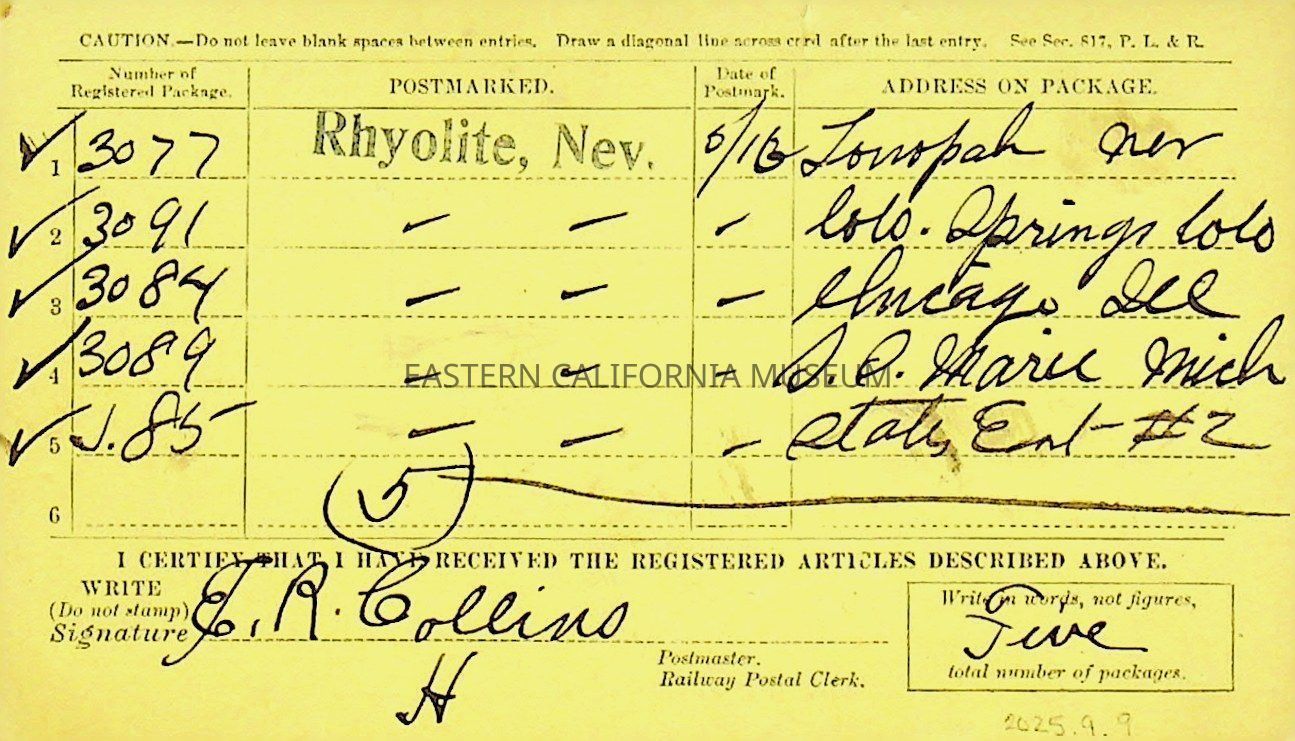 CAUTION.—Do not leave blank spaces between entries. Draw a diagonal line across card after the last entry. See Sec. 817, P. L. & R.
Number of Registered Package. POSTMARKED. Date of Postmark. ADDRESS ON PACKAGE.
1 3077 Rhyolite, Nev. Tonopah Nev
2 3091 — — — Colo. Springs Colo
3 3084 — — — Chicago Ill
4 3089 — — — Marie Mich
EASTERN CALIFORNIA MUSEUM
5 85 — — — #2
5
6
I CERTIFY THAT I HAVE RECEIVED THE REGISTERED ARTICLES DESCRIBED ABOVE.
WRITE
(Do not stamp)
Signature R. Collins
H
Postmaster.
Railway Postal Clerk.
Write in words, not figures,
Five
total number of packages.
2025.9.9